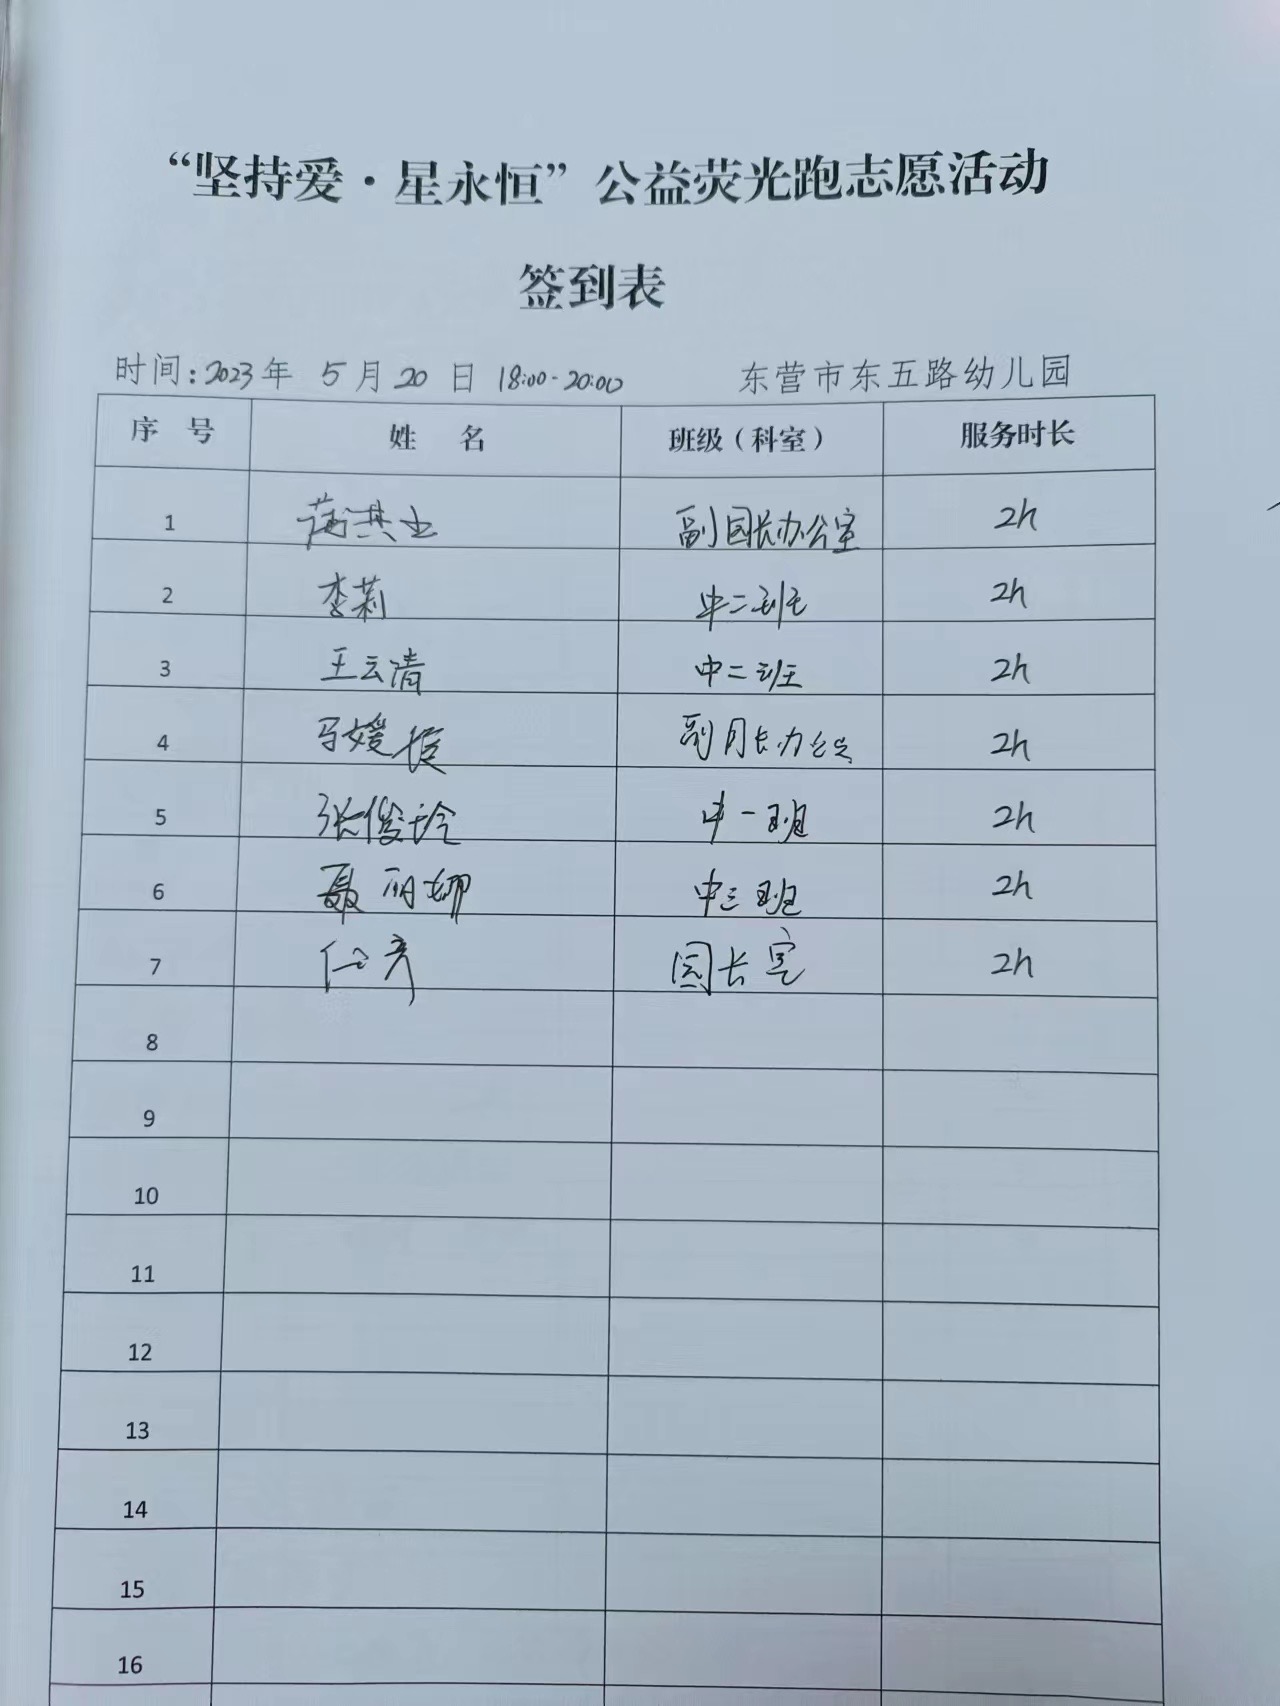 “坚持爱·星永恒”公益荧光跑志愿活动
签到表
时间:2023年 5月20日 18:00-20:00 东营市东五路幼儿园
序 号 姓 名 班级(科室) 服务时长
1 副园长办公室 2h
2 李莉 中二班 2h
3 王云清 中二班 2h
4 马媛媛 副园长办公室 2h
5 张俊玲 中一班 2h
6 聂丽娜 中三班 2h
7 任彦 园长室 2h
8
9
10
11
12
13
14
15
16